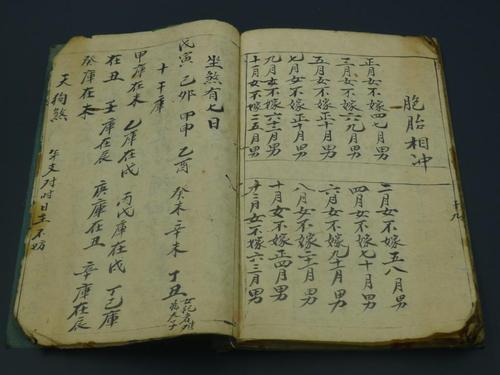 胞胎相冲
正月女不嫁四七月男
三月女不嫁六九月男
五月女不嫁正十月男
七月女不嫁正十月男
九月女不嫁六十三月男
十一月女不嫁二五月男
二月女不嫁五八月男
四月女不嫁七十月男
六月女不嫁九十月男
八月女不嫁二十一月男
十月女不嫁正四月男
十二月女不嫁六三月男
十九
坐煞有七日
戊寅 乙卯 甲申 乙酉 癸未 辛未 丁丑
十干庫
甲庫在未 乙庫在戌 丙戊庫在戌 丁己庫
在丑 壬庫在辰 庚庫在丑 辛庫在辰
癸庫在未
天狗煞 年支対時日主不妨